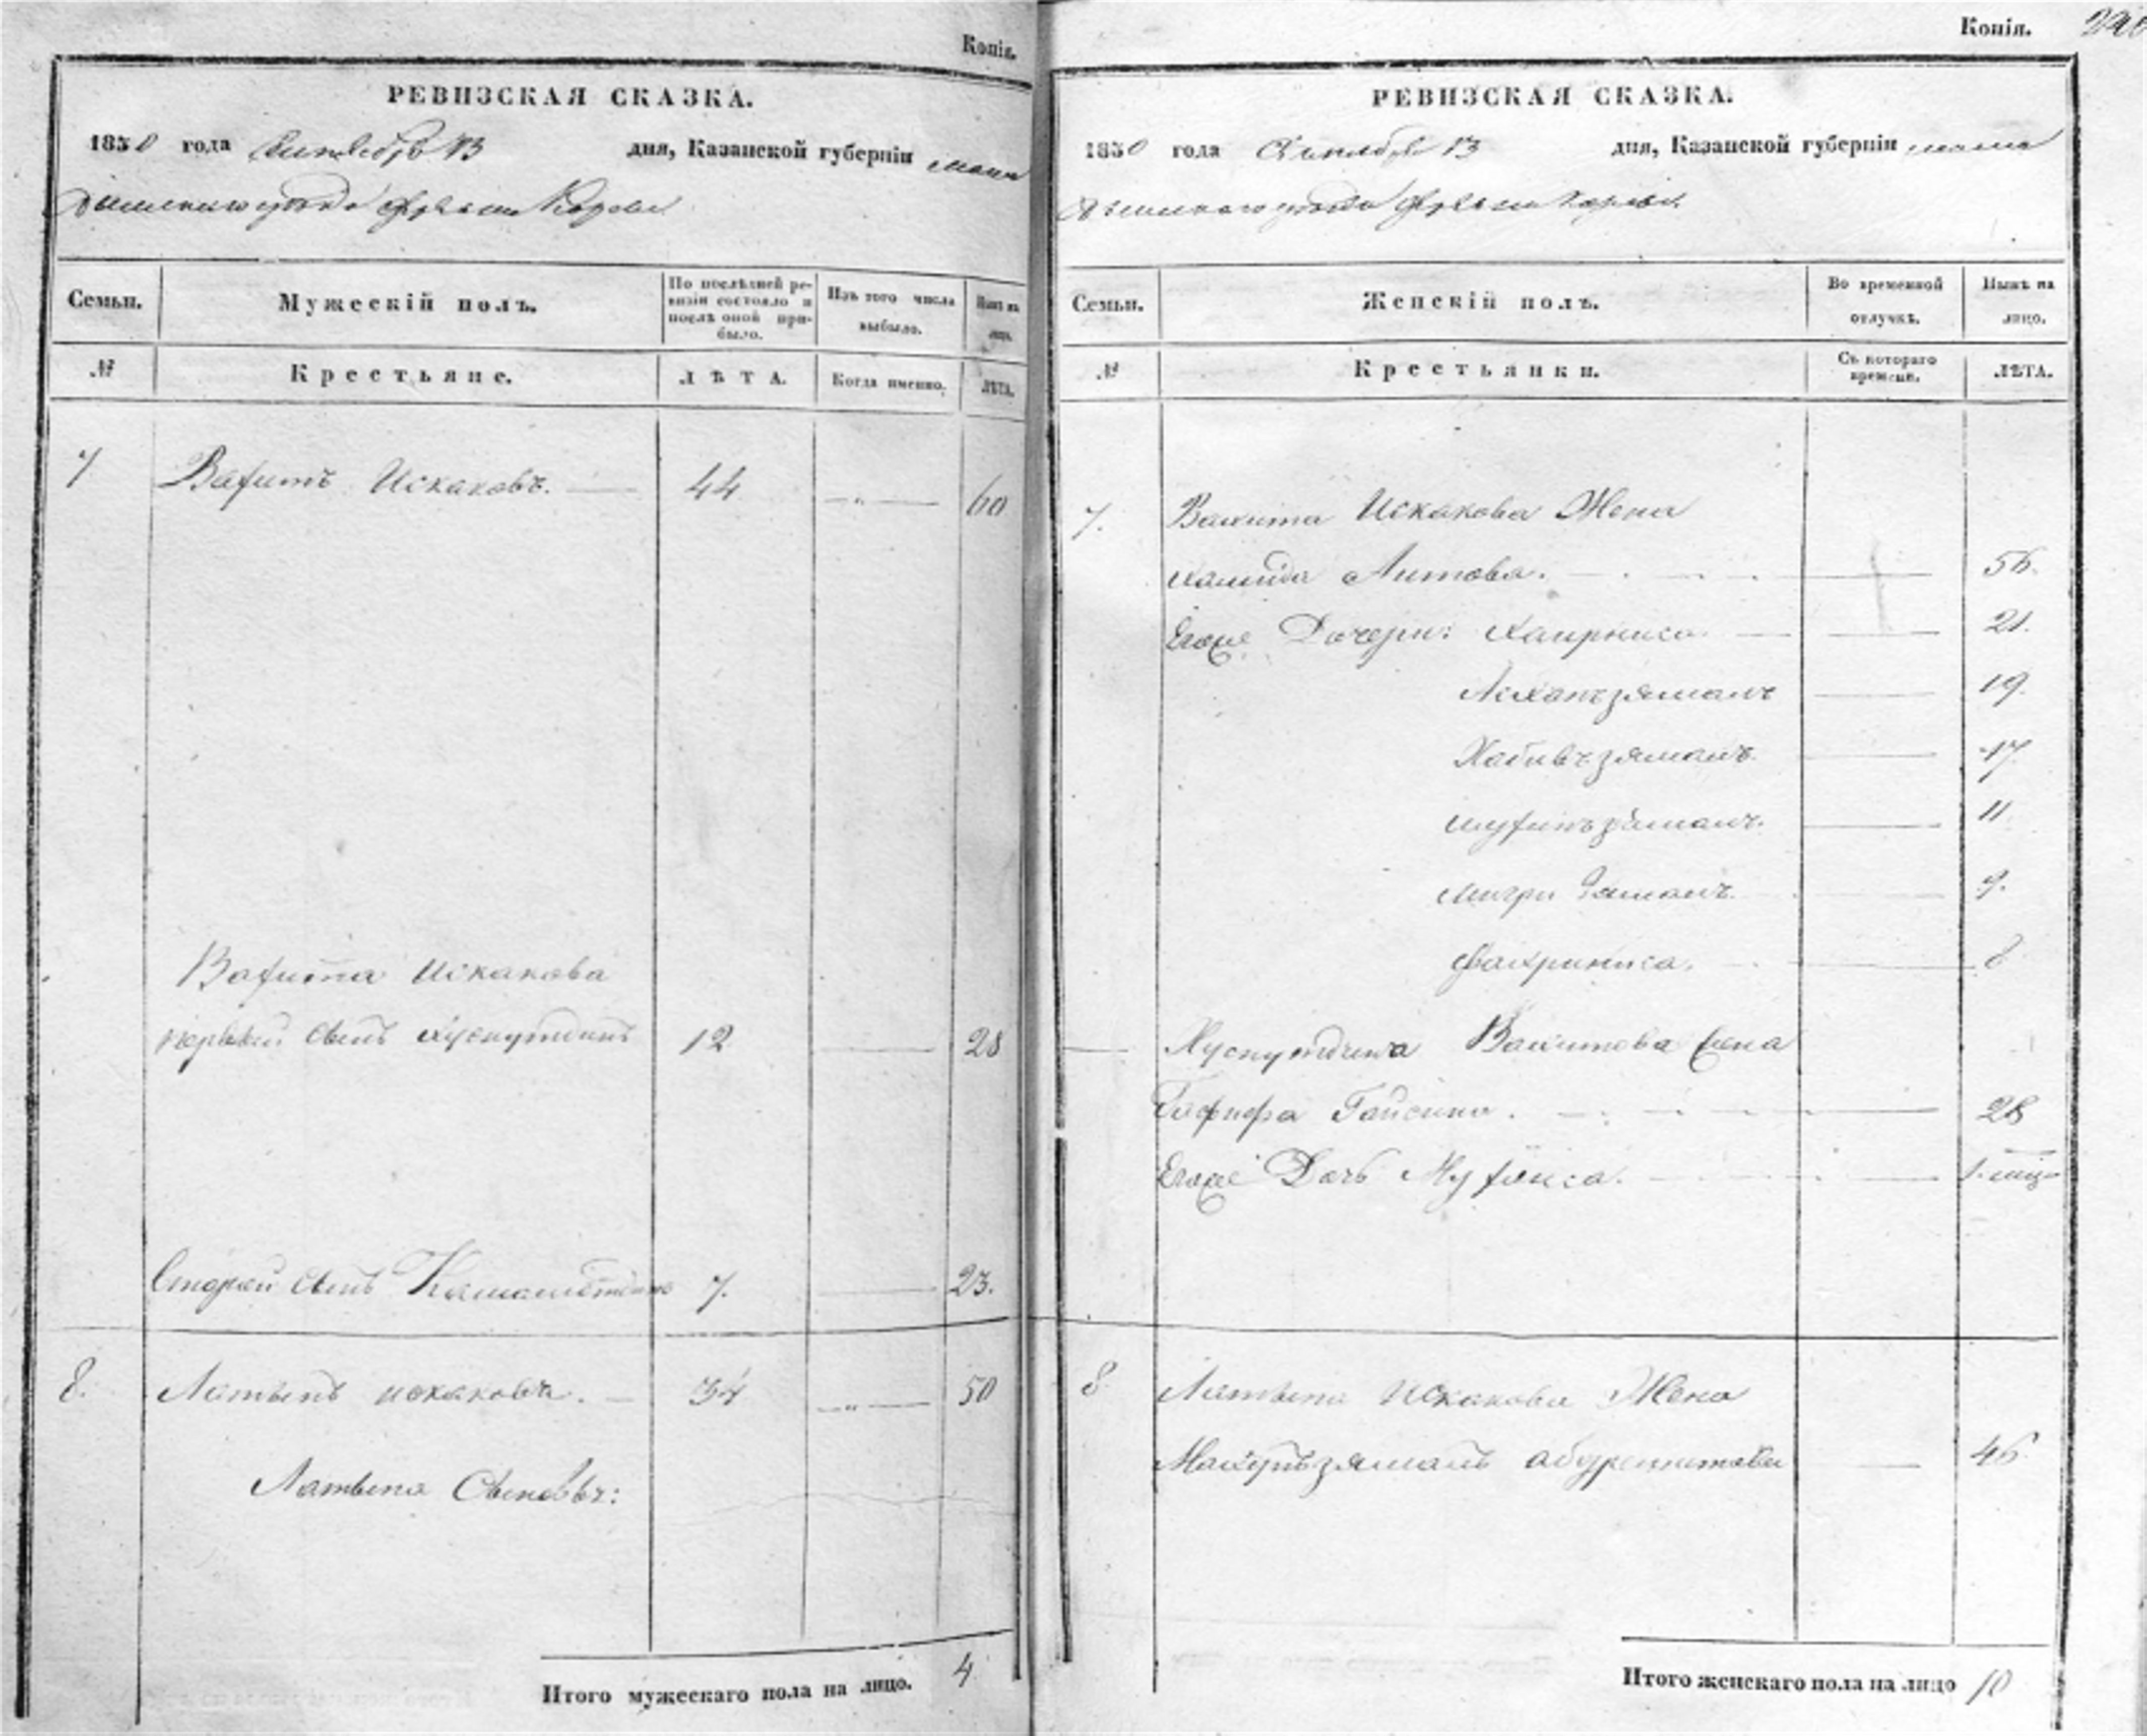 Копія.
РЕВИЗСКАЯ СКАЗКА.
1850 года Сентября 13 дня, Казанской губерніи мама
дышскаго уезда
Семьи. Мужескій полъ. По послѣдней ревизіи состояло и послѣ оной прибыло. Изъ того числа выбыло. Нынѣ на лицо.
№ Крестьяне. ЛѢТА. Когда именно. ЛѢТА.
7 Вафитъ Искаковъ. 44 60
Вафита Искакова
первый сынъ Хуснутдинъ 12 28
Второй сынъ 7. 23.
8. Латыпъ Искаковъ. 34 50
Латыпа Сыновья:
Итого мужескаго пола на лицо. 4
Копія.
РЕВИЗСКАЯ СКАЗКА.
1850 года Сентября 13 дня, Казанской губерніи мама
дышскаго уезда
Семьи. Женскій полъ. Во временной отлучкѣ. Нынѣ на лицо.
№ Крестьянки. Съ котораго времени. ЛѢТА.
7. Вахита Искакова Жена
Хамида Аитова. 56.
Егоже Дочери: Хаирниса 21.
19.
Хабибъзямалъ 17
11
Мигри Замалъ 9.
Фахриниса. 8
Хуснутдина Вахитова жена
Гафифа Гайсина. 28
Егоже Дочь
8 Латыпа Искакова Жена
46
Итого женскаго пола на лицо 10